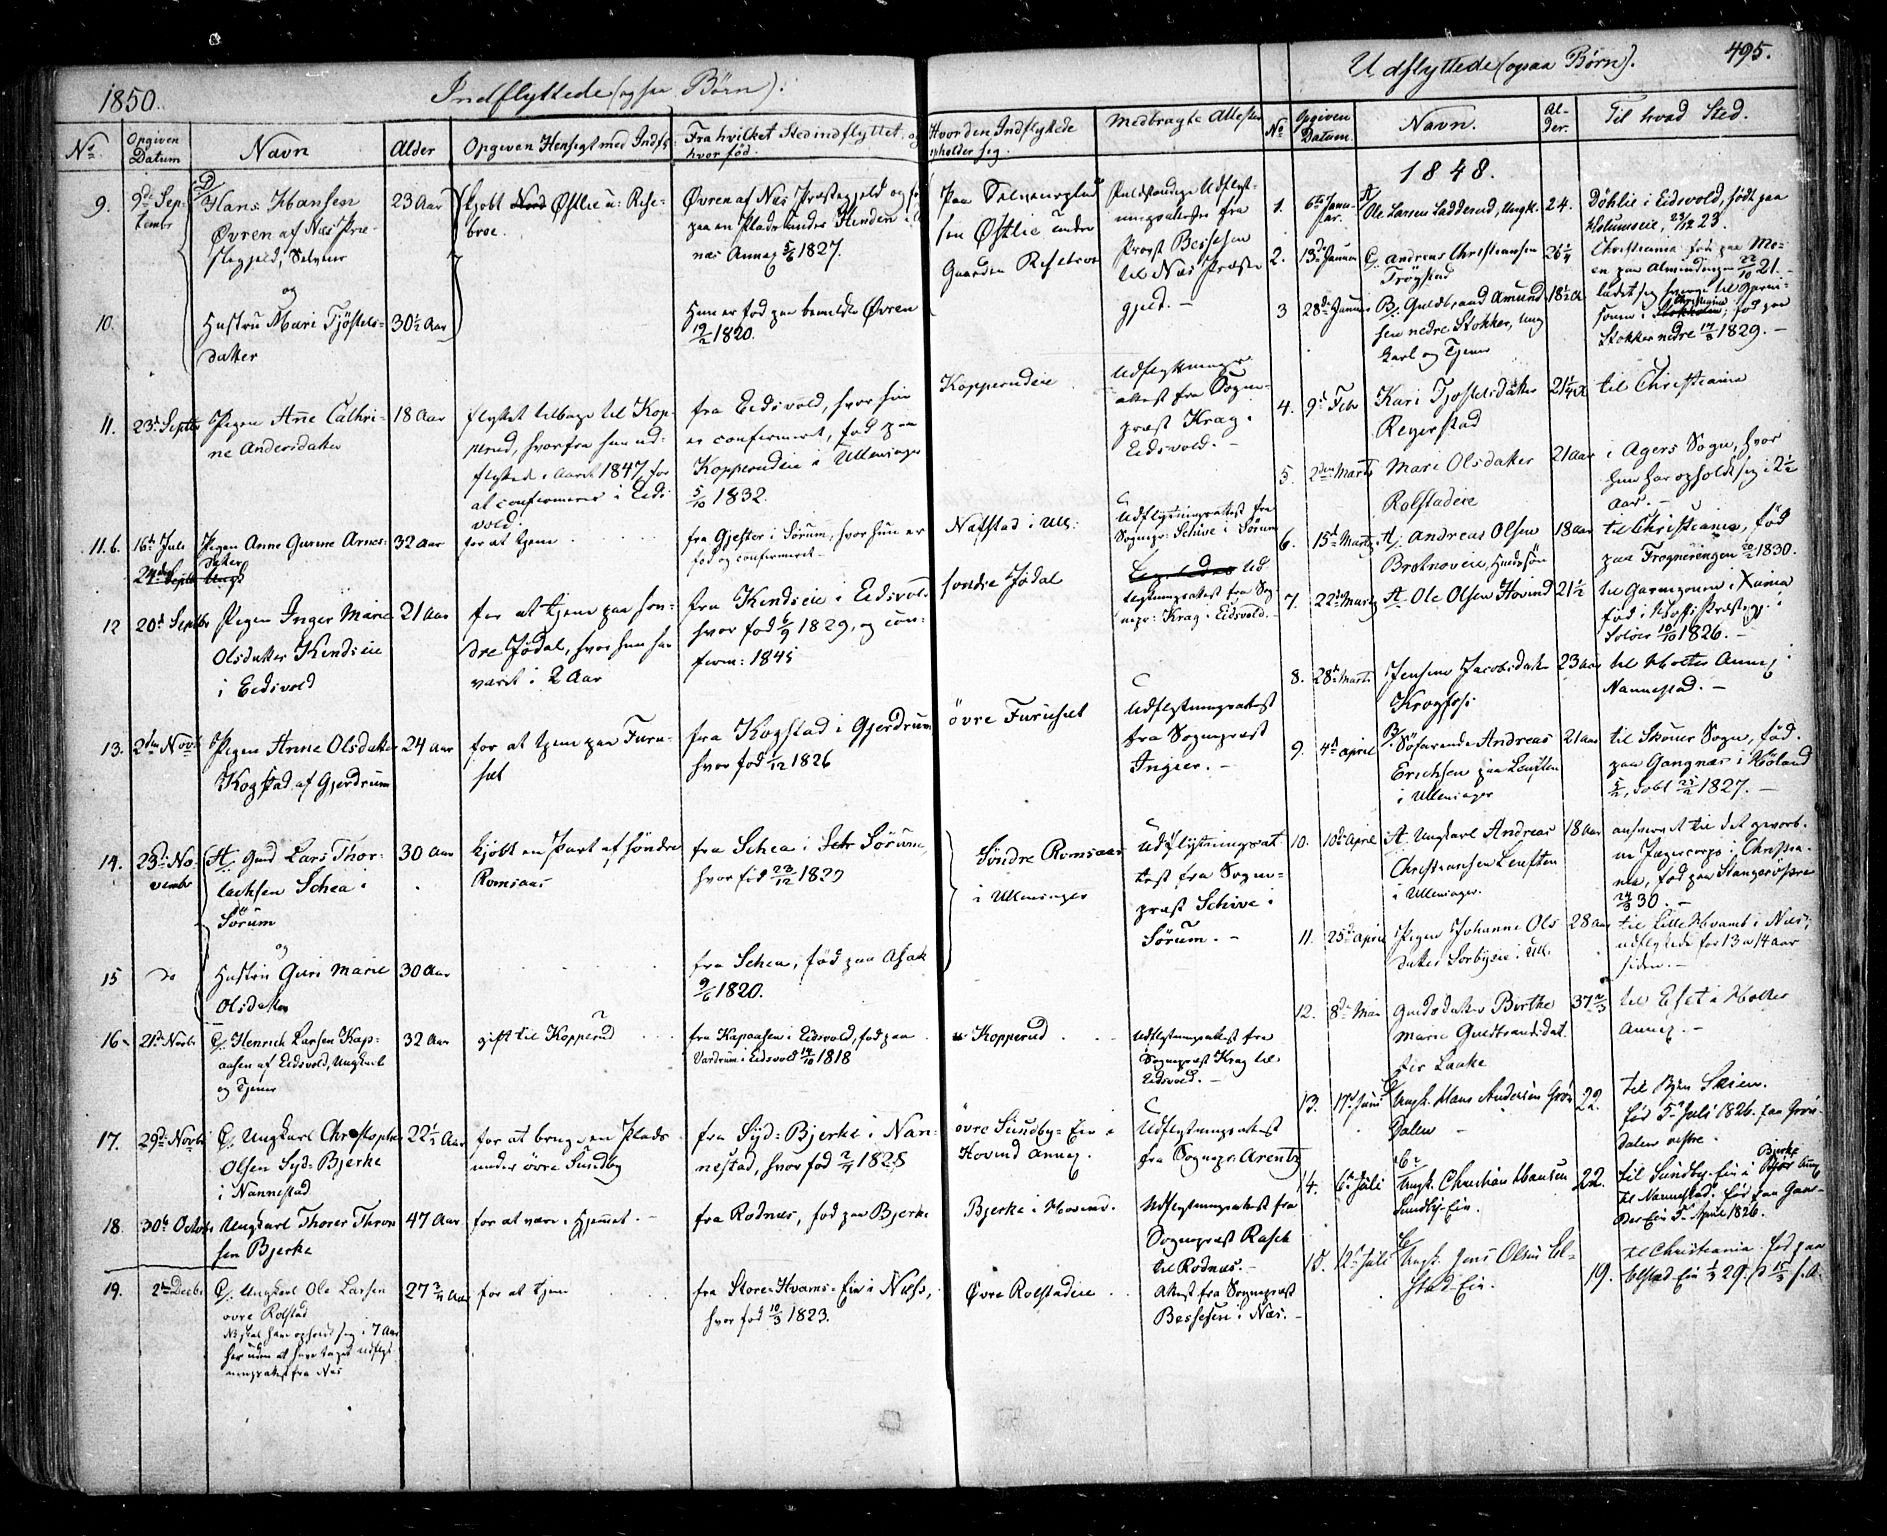 1850.
Indflyttede (ogsaa Børn).
No.
Opgiven Datum
Navn
Alder
Opgiven Hensigt med Indfl
Fra hvilket Sted indflyttet, og hvor fød.
Hvor den Indflyttede opholder sig.
Medbragte Attester
9.
9de Sep-
tembr
D/
Hans Hansen
Øvren af Næs Præ-
stegjeld, Selveier
og
23 Aar
kjøbt Nord Østlie u: Rise-
broe.
Øvren af Næs Præstegjeld og fød
paa en Plads under Henden i
næs Annex 5/6 1827.
Paa
sen Østlie under
Gaarden Risebroe
Udflyt-
ningsattester fra
Provst Bessesen
til Næs Præste
gjeld. -
10.
Hustru Mari Tjøstels-
datter
30½ Aar
Hun er fød paa bemeldte Øvren
19/2 1820.
11.
23d Septbr
Pigen Ane Cathri-
ne Andersdatter
18 Aar
flyttet tilbage til Kop-
perud, hvorfra hun ud-
flyttede i Aaret 1847 for
at confirmeres i Eids
vold.
fra Eidsvold, hvor hun
er confirmeret, fød paa
Kopperudeie i Ullensager
5/10 1832.
Kopperudeie
Udflytnings
attest fra Sogne-
præst Krag i
Eidsvold. -
11.b.
16de Juli
24de Septbr
Pigen Anne Gurine Arnes-
datter
32 Aar
for at tjene
fra Gjestor i Sørum, hvor hun er
fød og confirmeret -
Nafstad i Ull:
Udflytningsattest fra
Sognepr: Schive i Sørum
12
20d Septbr
Pigen Inger Marie
Olsdatter Kindseie
i Eidsvold
21 Aar
for at tjene paa søn-
dre Jødal, hvor hun har
været i 2 Aar
fra Kindseie i Eidsvold
hvor fød 6/9 1829, og con-
firm: 1845
søndre Jødal
Ud
flytningsattest fra Sog
nepr: Krag i Eidsvold. -
13.
2den Novb
Pigen Anne Olsdatter
Kogstad af Gjerdrum
24 Aar
for at tjene paa Furu-
set
fra Kogstad i Gjerdrum
hvor fød 1/12 1826
øvre Furuset
Udflytningsattest
fra Sognepræst
Ingier. -
14.
23d No-
vembr
A. Gmd Lars Thor-
lachsen Schea i
Sørum
og
30 Aar
kjøbt en Part af søndre
Romsaas
fra Schea i Sørum,
hvor fød 23/12 1820
Søndre Romsaas
i Ullensager
Udflytningsat
test fra Sogne-
præst Schive i
Sørum. -
15
do
Hustru Guri Marie
Olsdatter
30 Aar
fra Schea, fød paa Asak
9/6 1820.
16
21d Novbr
C/. Henrich Larsen Kap-
aasen af Eidsvold, Ungkarl
og Tjener
32 Aar
gift til Kopperud
fra Kapaasen i Eidsvold, fød paa
Vardrum i Eidsvold 14/10 1818
Kopperud
Udflytningsattest fra
Sognepræst Krag til
Eidsvold. -
17.
29d Novbr
C/. Ungkarl Christopher
Olsen Syd-Bjerke
i Nannestad
22½ Aar
for at bruge en Plads
under øvre Sundby
fra Syd-Bjerke i Nan-
nestad, hvor fød 2/4 1828
øvre Sundby-Eie i
Hovind Annex.
Udflytningsattest
fra Sognepr: Arentz
18.
30te Octobr
Ungkarl Thorer Thron
sen Bjerke
47 Aar
for at være i Hjemmet. -
fra Rodnæs, fød paa Bjerke
Bjerke i Hovind.
Udflytningsattest fra
Sognepræst Rasch
til Rodnæs. -
19.
2den Decbr
C/. Ungkarl Ole Larsen
øvre Rolstad
NB skal have opholdt sig i 7 Aar
her uden at have taget Udflyt
ningsattest fra Næs
27 3/4 Aar
for at tjene
fra Store-Hvams-Eie i Næss,
hvor fød 10/3 1823.
Øvre Rolstadeie
Attest fra Sognepræst
Bessesen i Næs. -
Udflyttede (ogsaa Børn).
495.
No
Opgiven Datum.
Navn.
Al-
der.
Til hvad Sted.
1848.
1.
6te Janu-
ar.
Ole Larsen Ladderud, Ungk.
24.
Døhlie i Eidsvold, født paa
23.
2.
13de Januar
C/. Andreas Christiansen
Trøgstad
26¼
Christiania fød paa Mo-
en paa Almindingen 22/10 21. -
3
28de Januar
B/. Guldbrand Amund
sen nedre Stokker, Ung
karl og Tjener
18½ A
ladet sig hverve til Garni-
sonen i Christiania, fød paa
Stokker nedre 14/8 1829. -
4.
9d Feb
Kari Tjostelsdatter
Reyerstad
21¼ A
til Christiania
5.
2den Marts
Mari Olsdatter
Rolstadeie
21 Aar
i Agers Sogn, hvor
hun har opholdt sig i 2½
Aar. -
6.
15d Marts
A/. Andreas Olsen
Brotnoveie, Huusmandssøn
18 Aar
til Christiania, fød
paa Frognerengen 20/2 1830.
7.
22d Marts
A. Ole Olsen Hovind
21½
til Garnisonen i Xiania
fød i Hofs Præsteg. i
Soløer 10/10 1826. -
8.
28d Marts
Jensine Jacobsdatter
Krogfoss
23 Aar
til Holter Annex i
Nannestad. -
9.
4d April
B. Søfarende Andreas
Erichsen paa Leufsten
i Ullensager
21 Aar
til Sogn, fød
paa Gangnæs i Høland
5/2, døbt 25/2 1827. -
10.
10d April
A. Ungkarl Andreas
Christiansen Leufsten
i Ullensager.
18 Aar
antaget til det gevorb-
ne Jægercorps i Christia-
nia, fød paa
30. -
11.
25d April
Pigen Johanne Ols
datter Sørbyeie i Ull.
28 Aar
til Lille Hvamb i Næs,
udflyttede for 13 a 14 Aar
siden. -
12.
8d Mai
Gaardsdatter Birthe
Marie Guldbrandsdat
ter Laake
37 2/3
til Elset i Holter
Annex. -
13.
17d Juni
Ungk. Hans Andersen Grøn
Dalen -
22.
til Byen Skien.
Fød 5d Juli 1826 paa Grøn-
dalen vestre.
14.
6te Juli
Ungk. Christian Hansen
Sundby-Eie.
22.
til Sundby-Eie i Bjerke Annx
til Nannestad. Fød paa
5d April 1826.
15.
12d Juli
Ungk. Jens Olsen El-
stad-Eie.
19.
til Christiania. Fød paa
Elstad Eie 1/3 29.